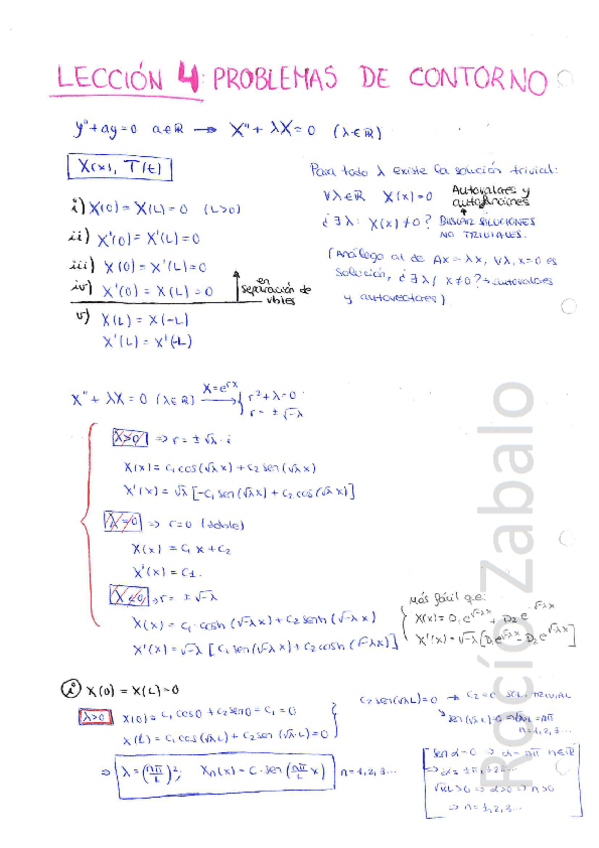 LECCIÓN 4: PROBLEMAS DE CONTORNO
y'' + ay = 0 a∈ℝ → X'' + λX = 0 (λ∈ℝ)
X(x), T(t)
i) X(0) = X(L) = 0 (L>0)
ii) X'(0) = X'(L) = 0
iii) X(0) = X'(L) = 0
iv) X'(0) = X(L) = 0
en separación de vbles
v) X(L) = X(-L)
X'(L) = X'(-L)
Para todo λ existe la solución trivial:
∀λ∈ℝ X(x) = 0 Autovalores y autofunciones
¿∃λ: X(x) ≠ 0? BUSCAR SOLUCIONES NO TRIVIALES.
(Análogo al de Ax = λx, ∀λ, x=0 es
solución, ¿∃λ / x≠0? → autovalores
y autovectores)
X'' + λX = 0 (λ∈ℝ) X = e^{rx} → { r² + λ = 0
r = ± √-λ
λ>0 ⇒ r = ± √λ · i
X(x) = C₁ cos(√λ x) + C₂ sen(√λ x)
X'(x) = √λ [-C₁ sen(√λ x) + C₂ cos(√λ x)]
λ=0 ⇒ r = 0 (doble)
X(x) = C₁ x + C₂
X'(x) = C₁.
λ<0 ⇒ r = ± √-λ
X(x) = C₁ · cosh(√-λ x) + C₂ senh(√-λ x)
X'(x) = √-λ [C₁ sen(√-λ x) + C₂ cosh(√-λ x)]
Más fácil que:
X(x) = D₁ e^{√-λ x} + D₂ e^{-√-λ x}
X'(x) = √-λ [D₁ e^{√-λ x} - D₂ e^{-√-λ x}]
i) X(0) = X(L) = 0
λ>0 X(0) = C₁ cos 0 + C₂ sen 0 = C₁ = 0
X(L) = C₁ cos(√λ L) + C₂ sen(√λ · L) = 0
C₂ sen(√λ L) = 0 → C₂ = 0 SOL. TRIVIAL
sen(√λ L) = 0 → √λ L = nπ
n = 1, 2, 3...
⇒ λ = (nπ/L)², Xₙ(x) = C · sen(nπ/L x) n = 1, 2, 3...
sen α = 0 ⇒ α = nπ n∈ℤ
⇒ α = ±π, ±2π...
√λ L > 0 ⇒ α > 0 ⇒ n > 0
⇒ n = 1, 2, 3...
Rocío Zabalo